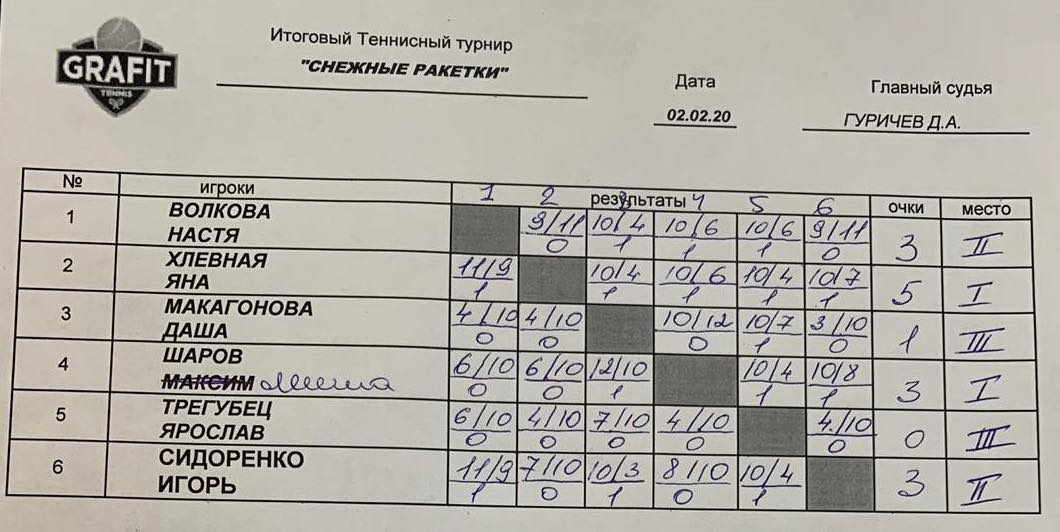 GRAFIT
TENNIS
Итоговый Теннисный турнир
"СНЕЖНЫЕ РАКЕТКИ"
Дата
02.02.20
Главный судья
ГУРИЧЕВ Д.А.
№ игроки результаты очки место
1 2 3 4 5 6
1 ВОЛКОВА
НАСТЯ
9/11 10/4 10/6 10/6 9/11 3 II
0 1 1 1 0
2 ХЛЕВНАЯ
ЯНА
11/9 10/4 10/6 10/4 10/7 5 I
1 1 1 1 1
3 МАКАГОНОВА
ДАША
4/10 4/10 10/12 10/7 3/10 1 III
0 0 0 1 0
4 ШАРОВ
МАКСИМ
6/10 6/10 12/10 10/4 10/8 3 I
0 0 1 1 1
5 ТРЕГУБЕЦ
ЯРОСЛАВ
6/10 4/10 7/10 4/10 4/10 0 III
0 0 0 0 0
6 СИДОРЕНКО
ИГОРЬ
11/9 7/10 10/3 8/10 10/4 3 II
1 0 1 0 1